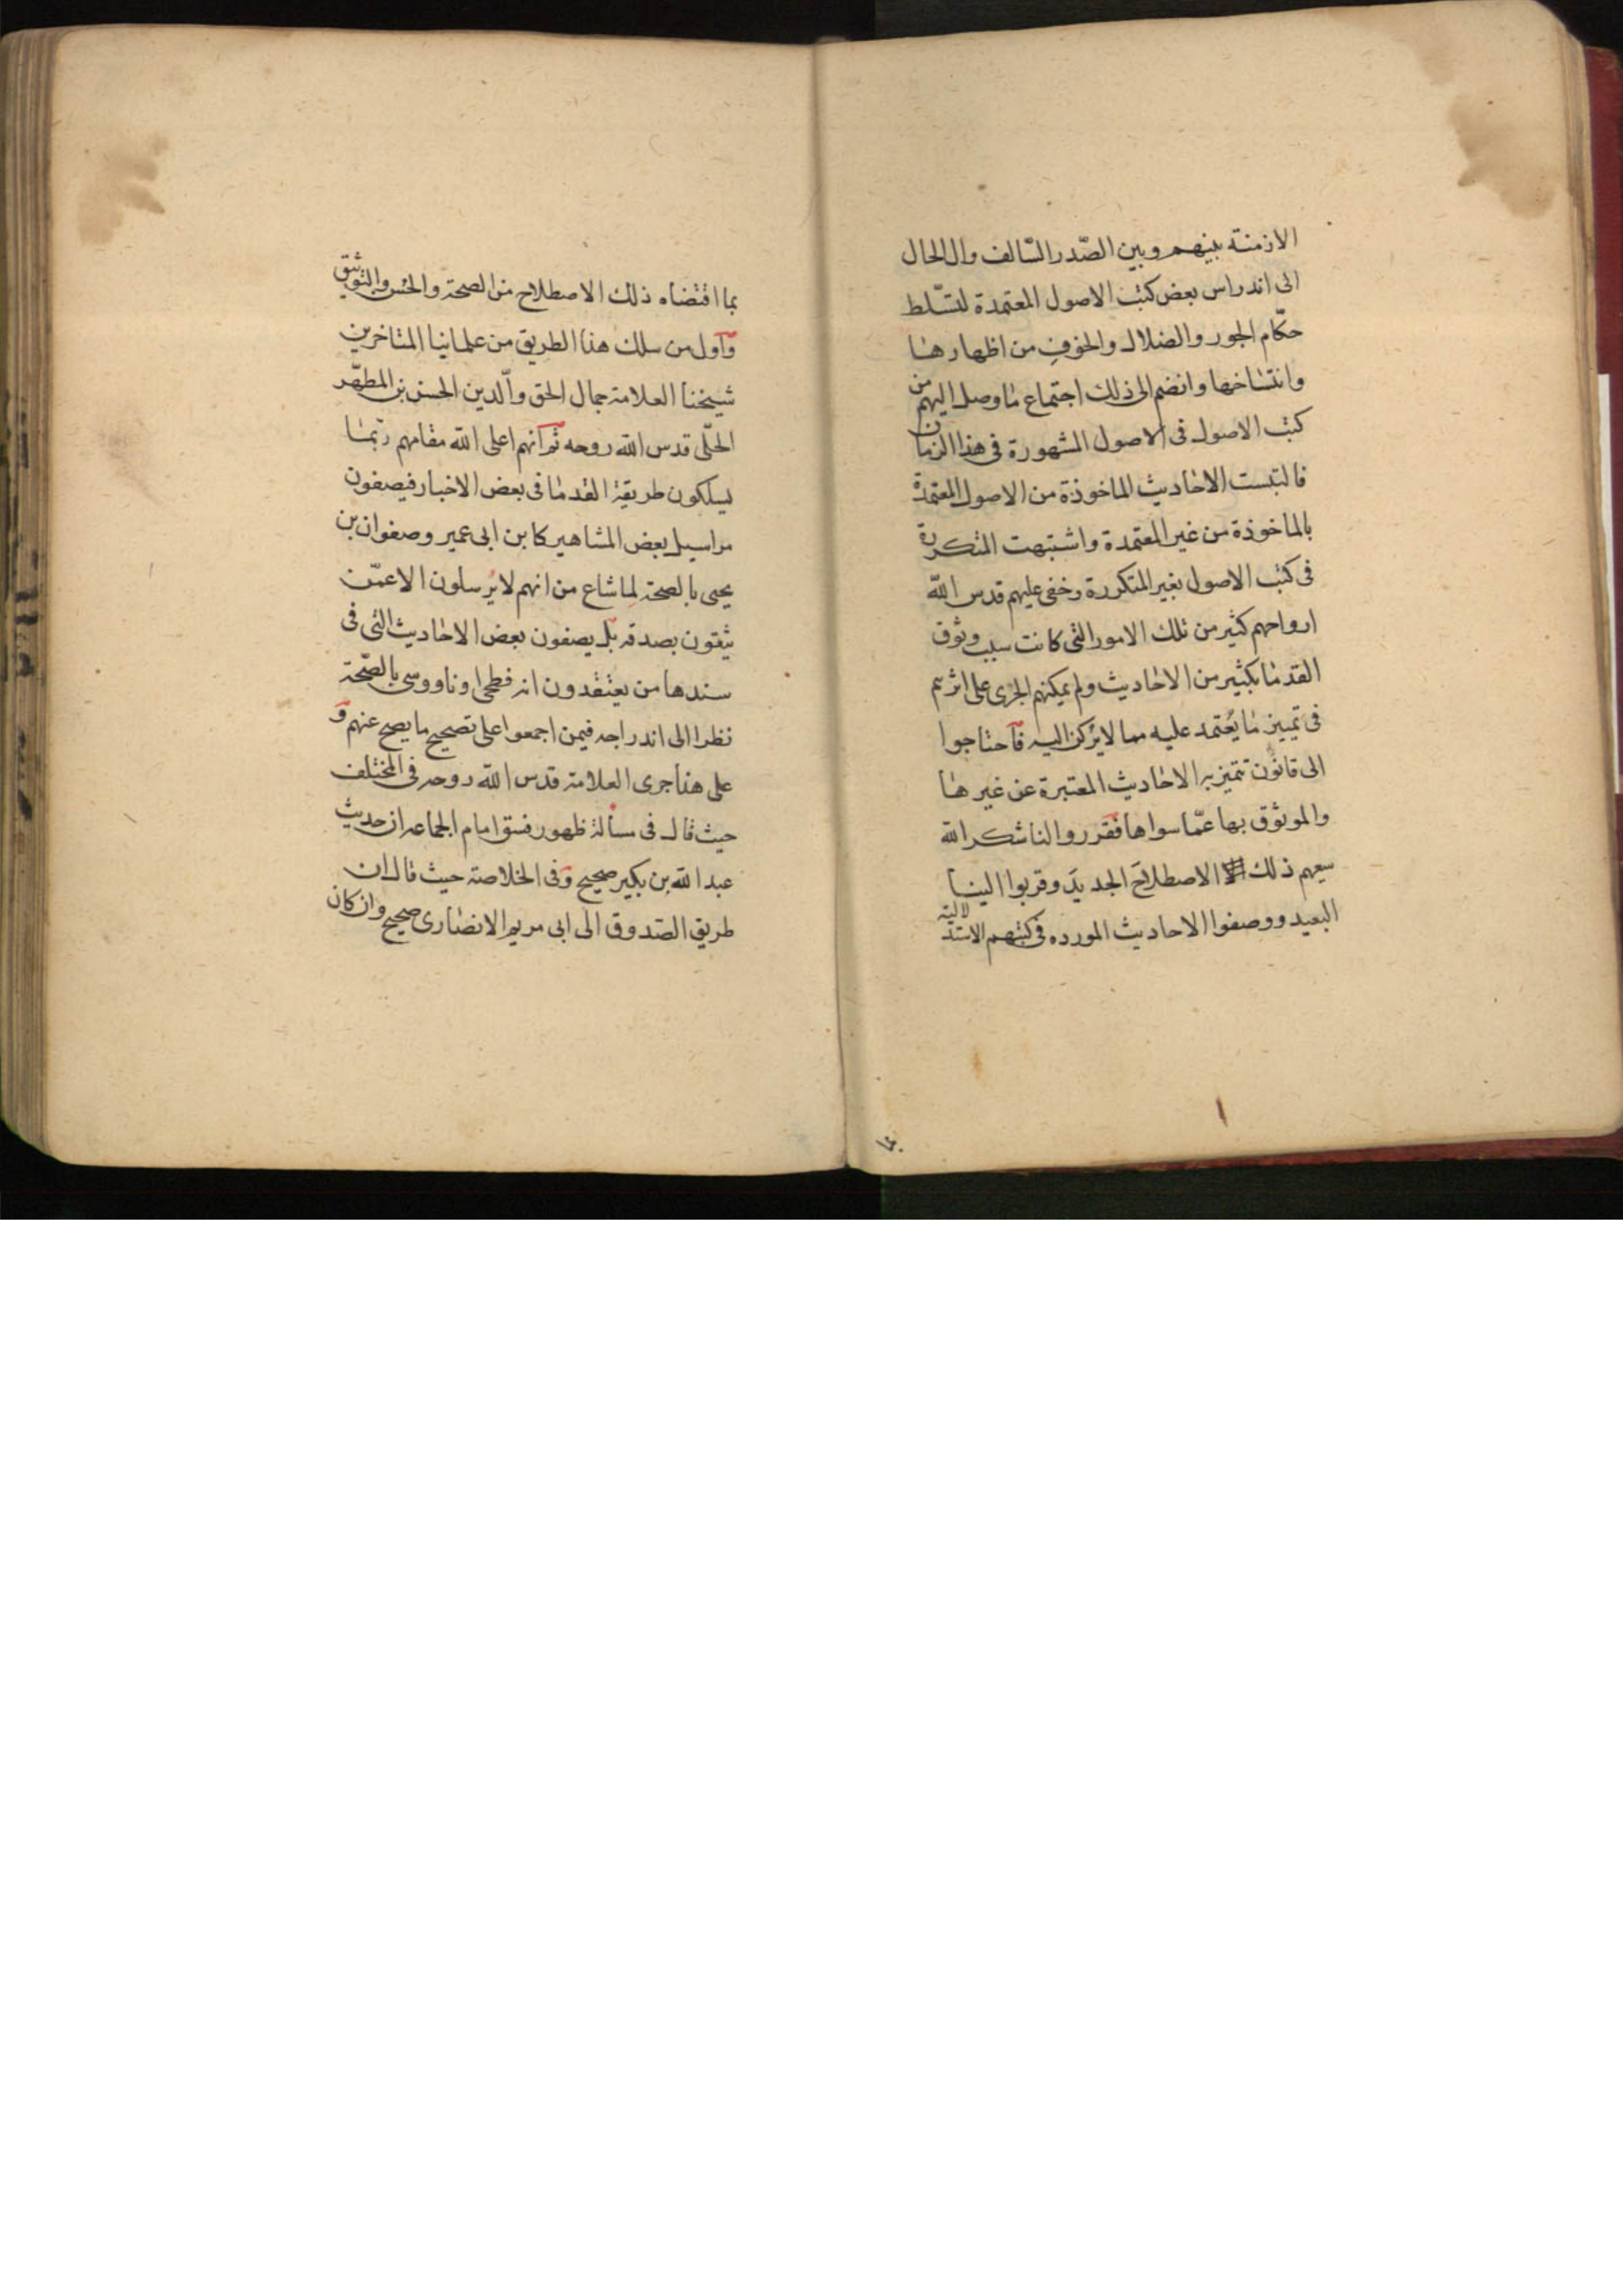 الازمنة بينهم وبين الصّدر السّالف وال الحال
الى اندراس بعض كتب الاصول المعتمدة لتسّلط
حكّام الجور والضلال والخوف من اظهارها
وانتساخها وانضم الى ذلك اجتماع ما وصل اليهم من
كتب الاصول فى الاصول المشهورة فى هذا الزمان
فالتبست الاحاديث الماخوذة من الاصول المعتمدة
بالماخوذة من غير المعتمدة واشتبهت المتكررة
فى كتب الاصول بغير المتكررة وخفى عليهم قدس اللّه
ارواحهم كثير من تلك الامور التى كانت سبب وثوق
القدما بكثير من الاحاديث ولم يمكنهم الجرى على اثرهم
فى تمييز ما يُعتمد عليه مما لا يركن اليه فاحتاجوا
الى قانون تتميز به الاحاديث المعتبرة عن غيرها
والموثوق بها عمّا سواها فقرروا لنا شكر اللّه
سعيهم ذلك الاصطلاح الجديد وقربوا الينا
البعيد ووصفوا الاحاديث المورده فى كتبهم الاستدلالية
بما اقتضاه ذلك الاصطلاح من الصحة والحسن والتوثيق
واول من سلك هذا الطريق من علمائنا المتاخرين
شيخنا العلامة جمال الحق والّدين الحسن بن المطهّر
الحلّى قدس اللّه روحه ثم انهم اعلى اللّه مقامهم ربّما
يسلكون طريقة القدما فى بعض الاخبار فيصفون
مراسيل بعض المشاهير كابن ابى عمير وصفوان بن
يحيى بالصحة لما شاع من انهم لا يُرسلون الا عمّن
يثقون بصدقه بل يصفون بعض الاحاديث التى فى
سندها من يعتقدون انه فطحى او ناووسى بالصّحة
نظرا الى اندراجه فيمن اجمعوا على تصحيح ما يصح عنهم و
على هذا جرى العلامة قدس اللّه روحه فى المختلف
حيث قال فى مسألة ظهور فسق امام الجماعه ان حديث
عبد اللّه بن بكير صحيح وفى الخلاصة حيث قال ان
طريق الصّدوق الى ابى مريم الانصارى صحيح وان كان